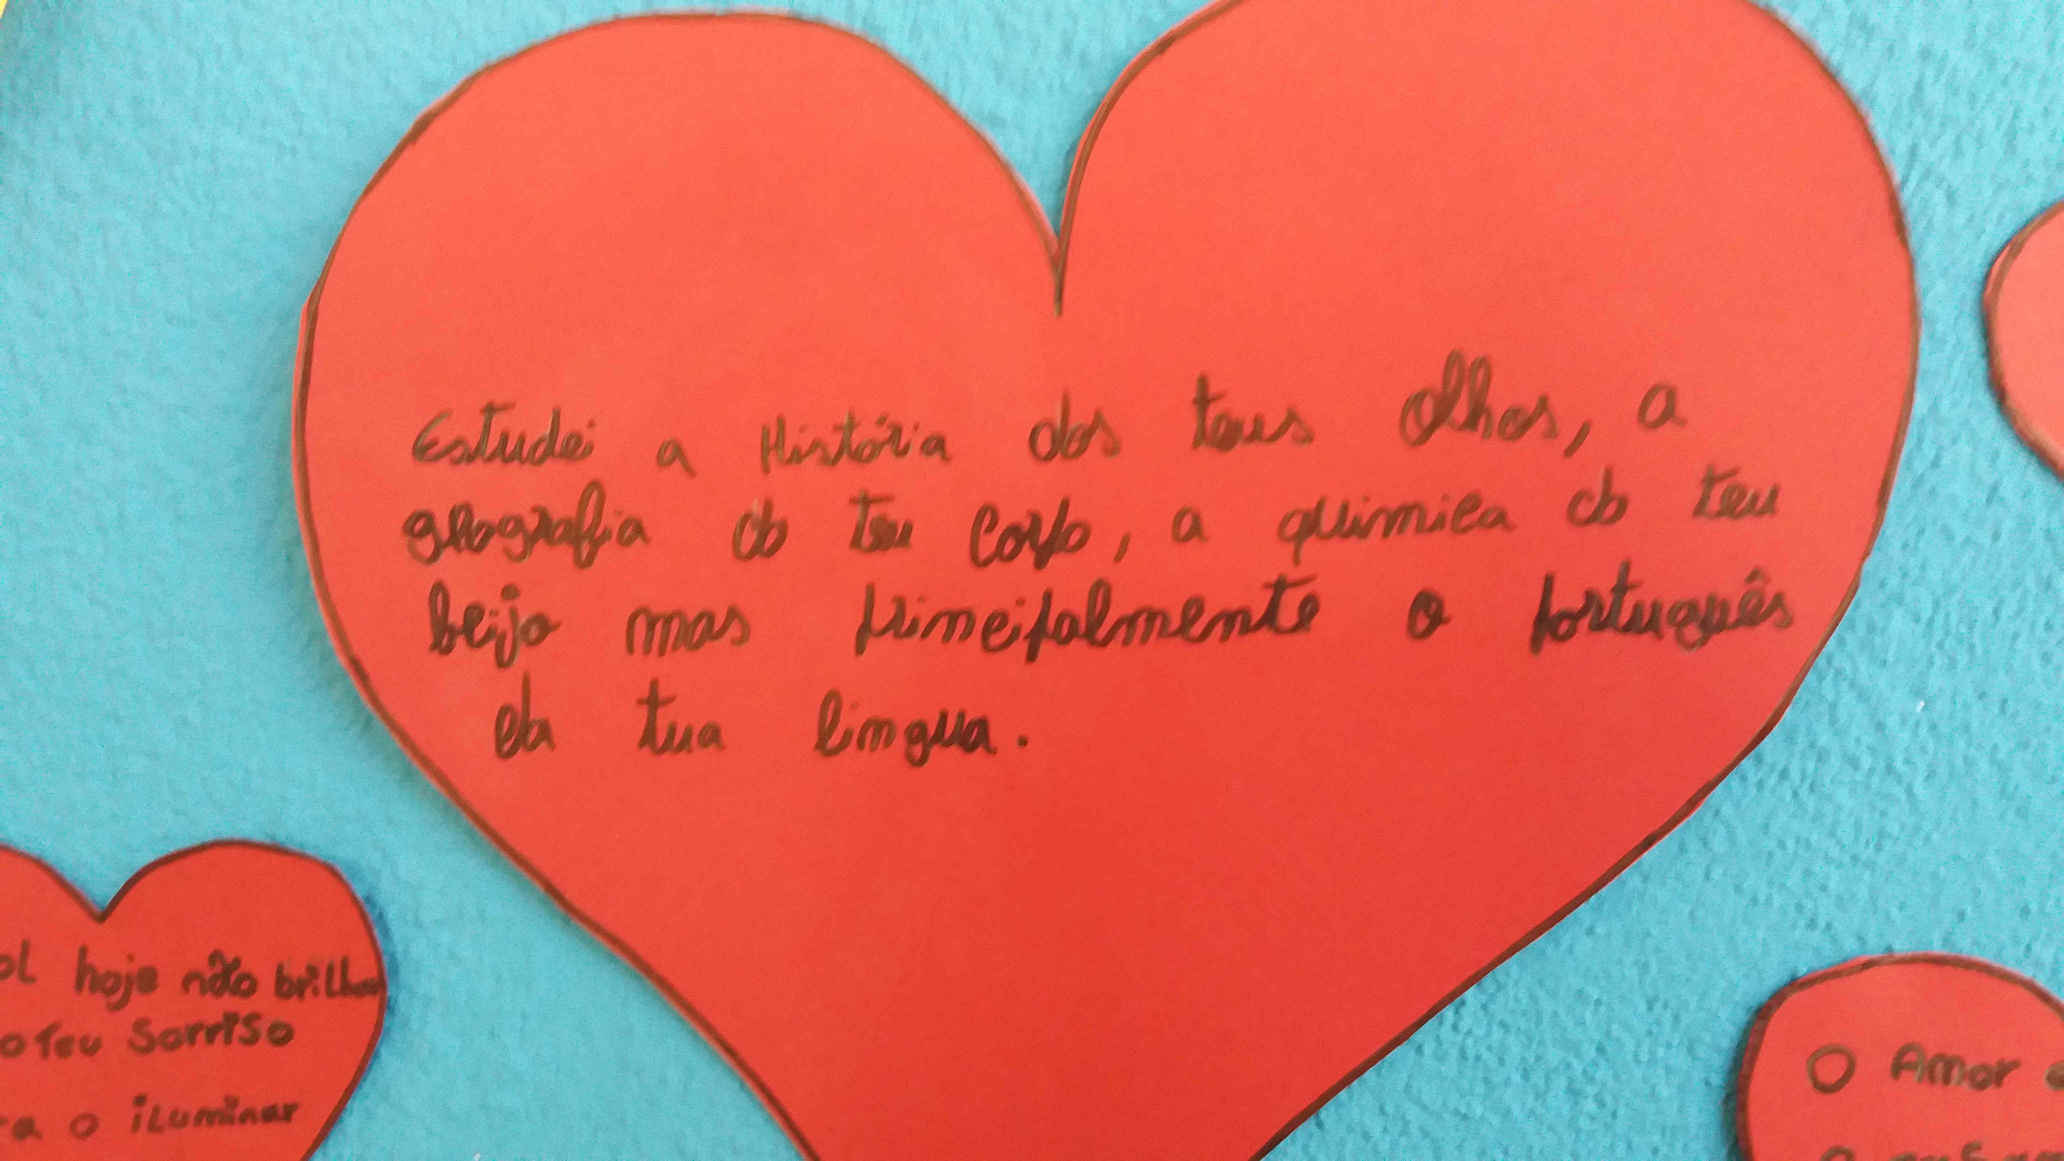 Estudei a História dos teus olhos, a
geografia do teu corpo, a quimica do teu
beijo mas principalmente o português
da tua lingua.
hoje não brilha
o teu sorriso
o iluminar
O Amor